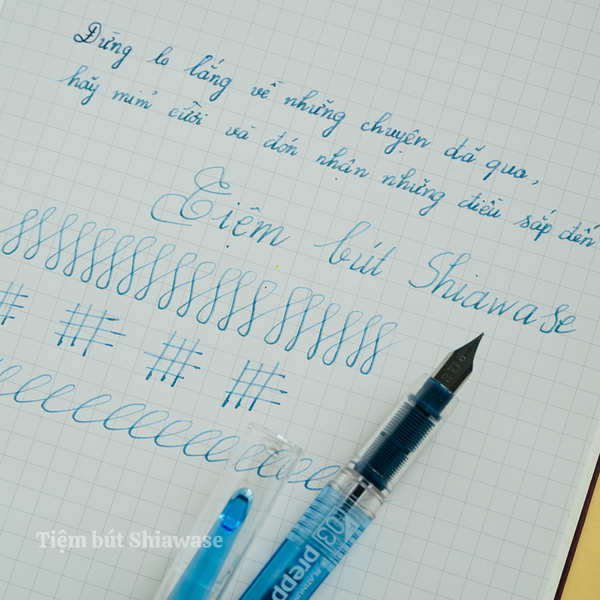 Đừng lo lắng về những chuyện đã qua,
hãy mỉm cười và đón nhận những điều sắp đến
Tiệm bút Shiawase
03
prepp
PLATINUM
Tiệm bút Shiawase